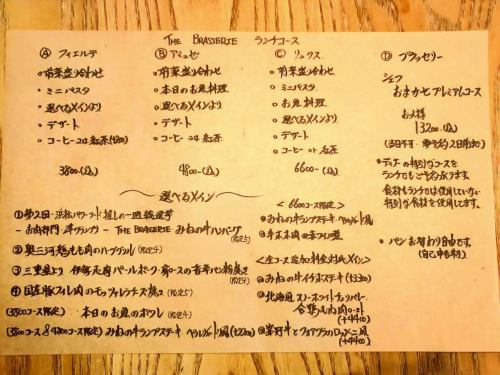 THE BRASSERIE ランチコース
Ⓐ フィエルテ
・前菜盛り合わせ
・ミニパスタ
・選べるメインより
・デザート
・コーヒー or 紅茶
3800-(込)
Ⓑ アミュゼ
・前菜盛り合わせ
・本日のお魚料理
・選べるメインより
・デザート
・コーヒー or 紅茶
4800-(込)
Ⓒ リュクス
・前菜盛り合わせ
・ミニパスタ
・お魚料理
・選べるメインより
・デザート
・コーヒー or 紅茶
6600-(込)
Ⓓ ブラッセリー
シェフ
おまかせプレミアムコース
お1人様
13200-(込)
・ディナーの特別なコースを
ランチでもご予約承ります。
食材もランチでは使用していない
特別な食材を使用します。
・パンお替わり自由です。
〜選べるメイン〜
①第2回・浜松パワーフード推しの一皿総選挙
- お肉部門 準グランプリ - THE BRASSERIE みねの牛ハンバーグ
② 奥三河鶏もも肉のハブグリル
③ 三重県より 伊勢元肉パールポーク・肩ロースの香草パン粉焼き
④ 国産豚フィレ肉のモッツァレラチーズ焼き
(3800コース限定) 本日のお魚のポワレ
(3800コース&4800コース限定) みねの牛ランプステーキ (+2200)
<6600コース限定>
◎みねの牛ランプステーキ
◎牛ホホ肉の赤ワイン煮
<全コース追加料金対応メイン>
◎みねの牛イチボステーキ (+3300)
◎北海道 スノーホワイトチェリバレー
合鴨むね肉ロースト
(+4400)
フォアグラのロッシーニ風
(+4400)